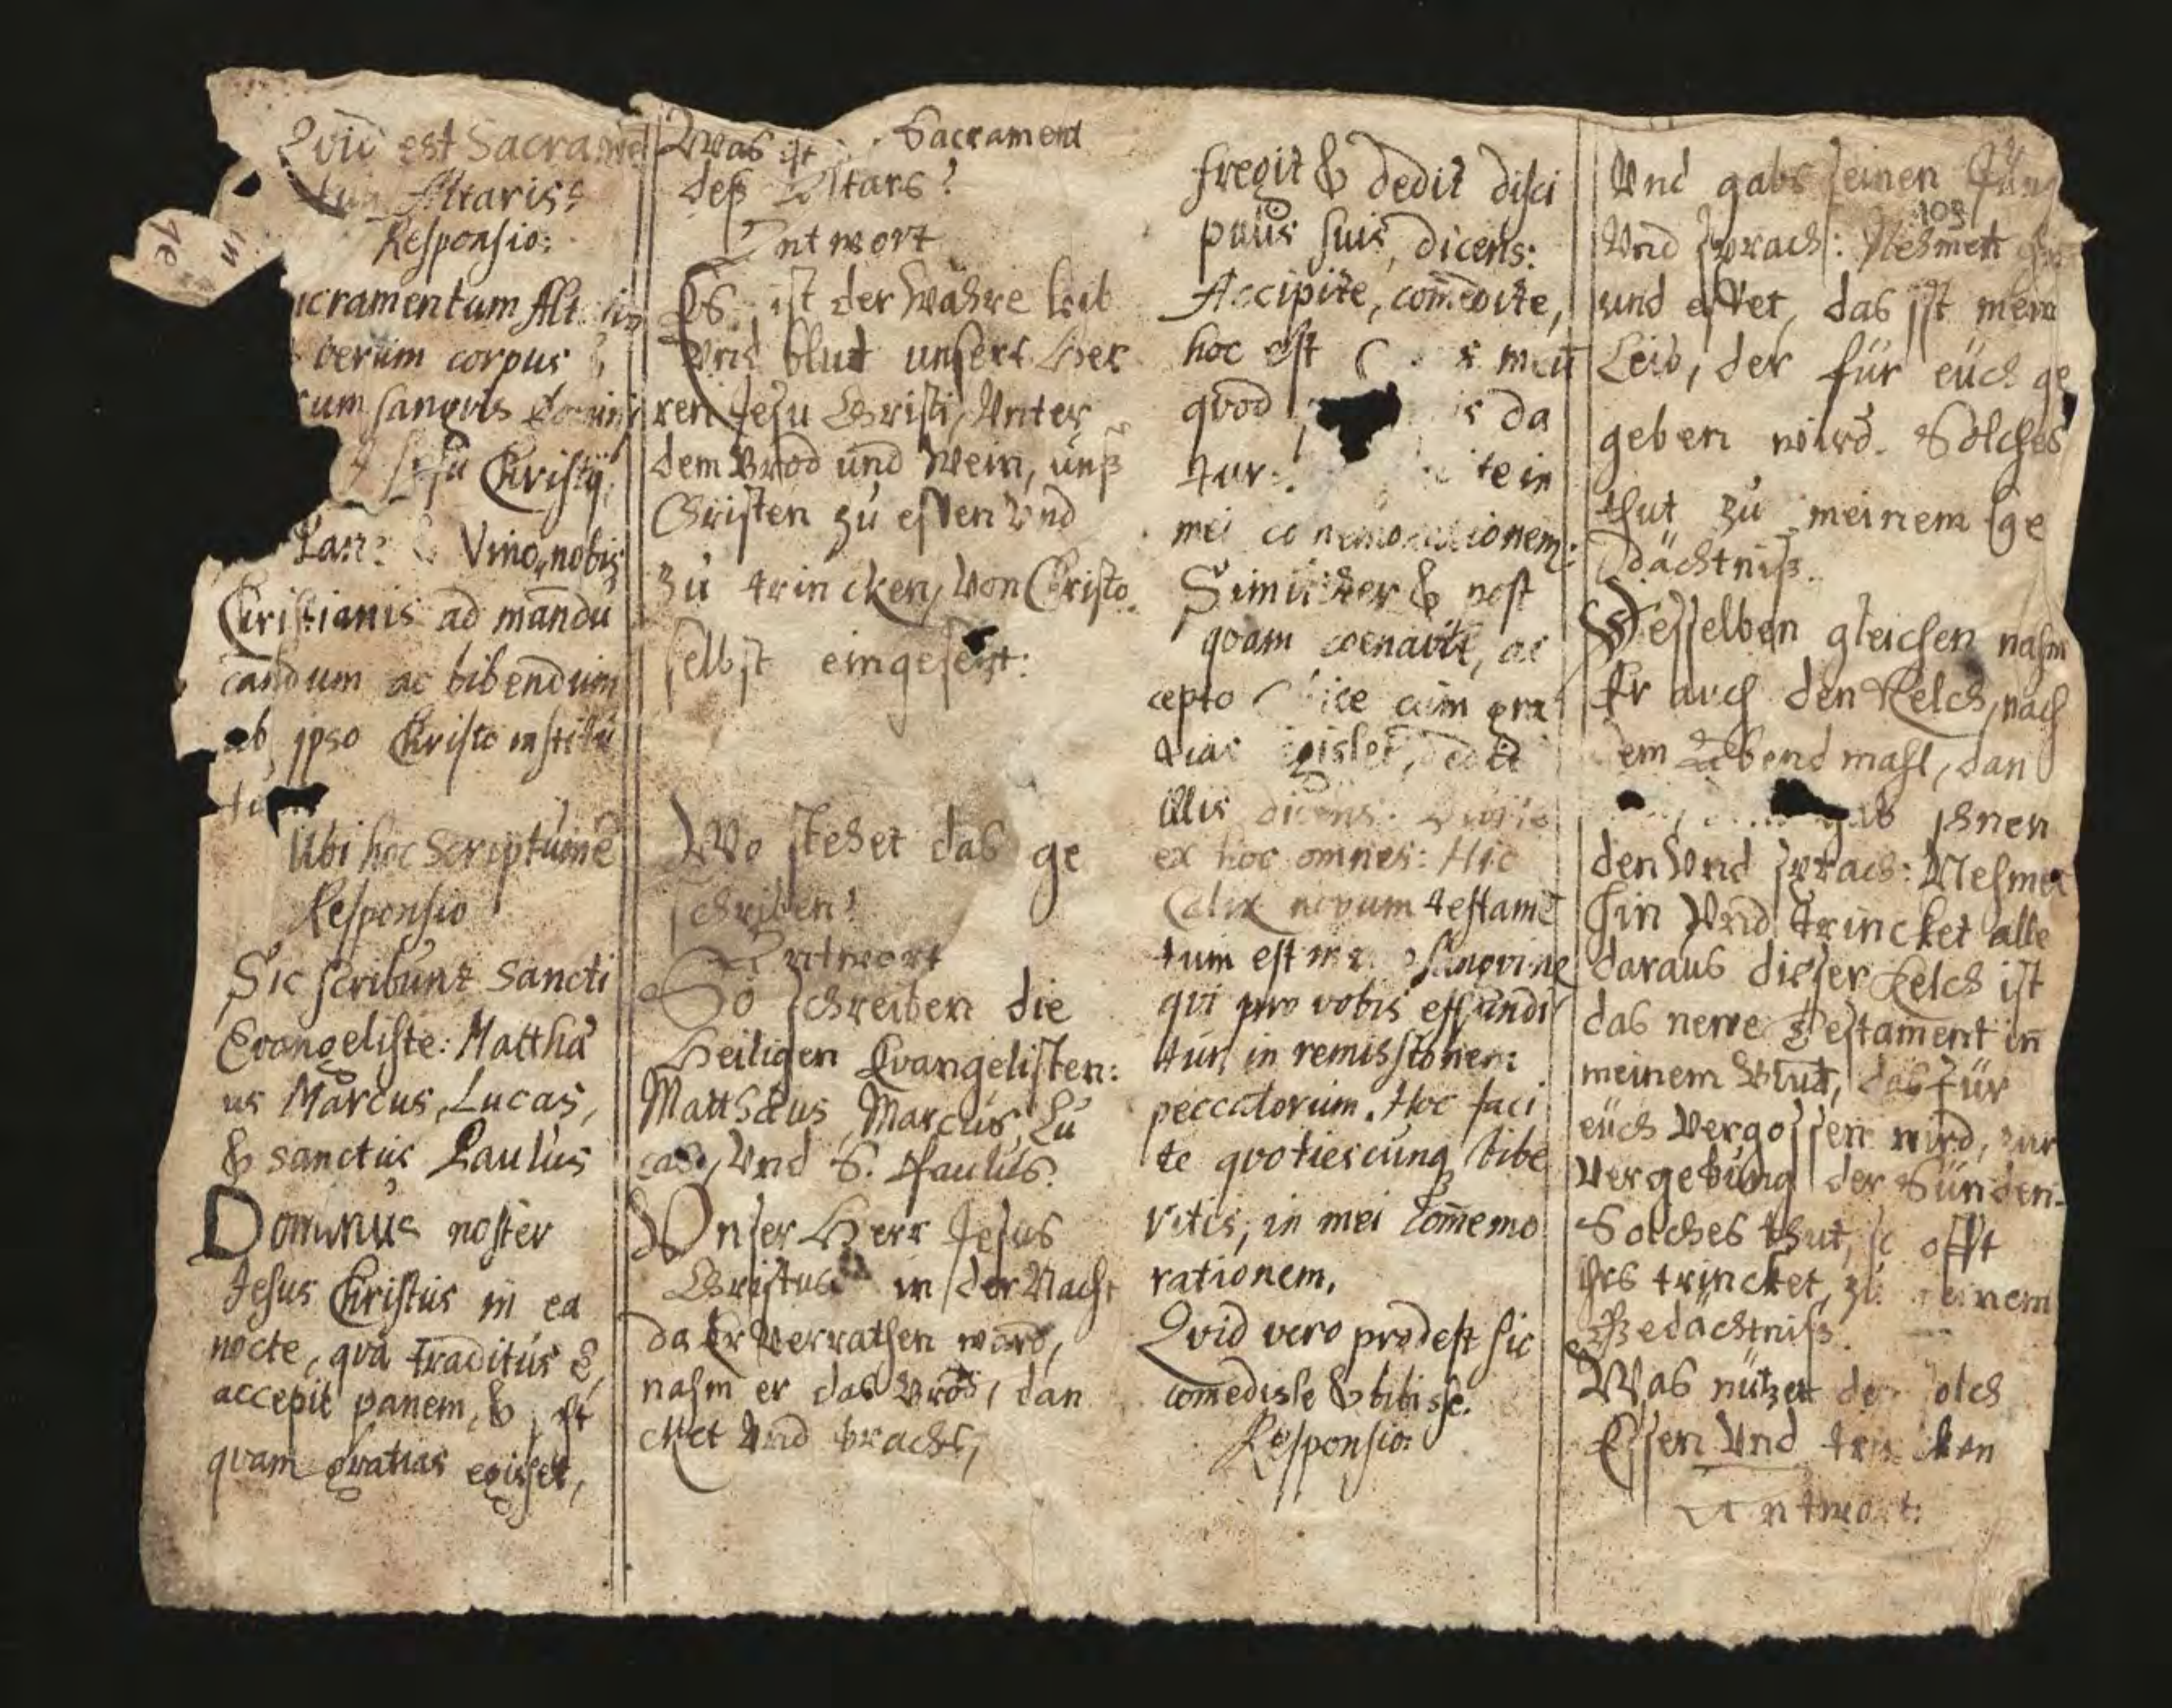 Qvid est Sacramē
tum Altaris?
Responsio:
acramentum Alt
verum corpus &
rum sangvis Domini
Jesu Christi,
Pane & Vino, nobis
Christianis ad mandu
candum ac bibendum
ab ipso Christo institu
tum
Ubi hoc Scriptum ē
Responsio
Sic scribunt Sancti
Evangeliste: Matthæ
us Marcus, Lucas,
& sanctus Paulus
Dominus noster
Jesus Christus in ea
nocte, qva traditus ē,
accepit panem, &
qvam gratias egisset,
Was ist Sacrament
deß Altars?
Antwort
Es ist der wahre leib
Vnd blut unsers Her
ren Jesu Christi, Vnter
dem Brod und Wein, unß
Christen zu essen Vnd
zu trincken, Von Christo
selbst eingesetzt:
Wo stehet das ge
schriben?
Antwort
So schreiben die
Heiligen Evangelisten:
Matthæus, Marcus, Lu
cas, Vnd S. Paulus.
Vnser Herr Jesus
Christus in der Nacht
da Er Verrathen ward,
nahm er das Brod, dan
cket Vnd brachs,
fregit & dedit disci
pulis suis, dicens:
Accipite, comedite,
hoc est meū
qvod da
tur: te in
mei commemorationem:
Similiter & post
qvam coenavit, ac
cepto calice cum gra
tias egisset, dedit
illis dicens: Bibite
ex hoc omnes: Hic
Calix novum testamē
tum est meo sangvine
qvi pro vobis effundi
tur, in remissionem
peccatorum. Hoc faci
te qvotiescunqꝫ bibe
ritis, in mei com̄emo
rationem.
Qvid vero prodest sic
comedisse & bibisse.
Responsio:
Vnd gabs seinen Jüng
103
Vnd sprach: Nehmet hin
und esset, das ist mein
Leib, der für euch ge
geben wird. Solches
thut zu meinem ge
dächtniß.
Desselben gleichen nahm
Er auch den Kelch, nach
dem Abendmahl, dan
gab ihnen
den Vnd sprach: Nehmet
hin Vnd trincket alle
daraus dieser Kelch ist
das newe Testament in
meinem Blut, das für
euch Vergossen wird, zur
Vergebung der Sünden.
Solches thut, so offt
ihrs trincket, zu meinem
Gedächtniß.
Was nützet den solch
Essen Vnd trincken
Antwort: